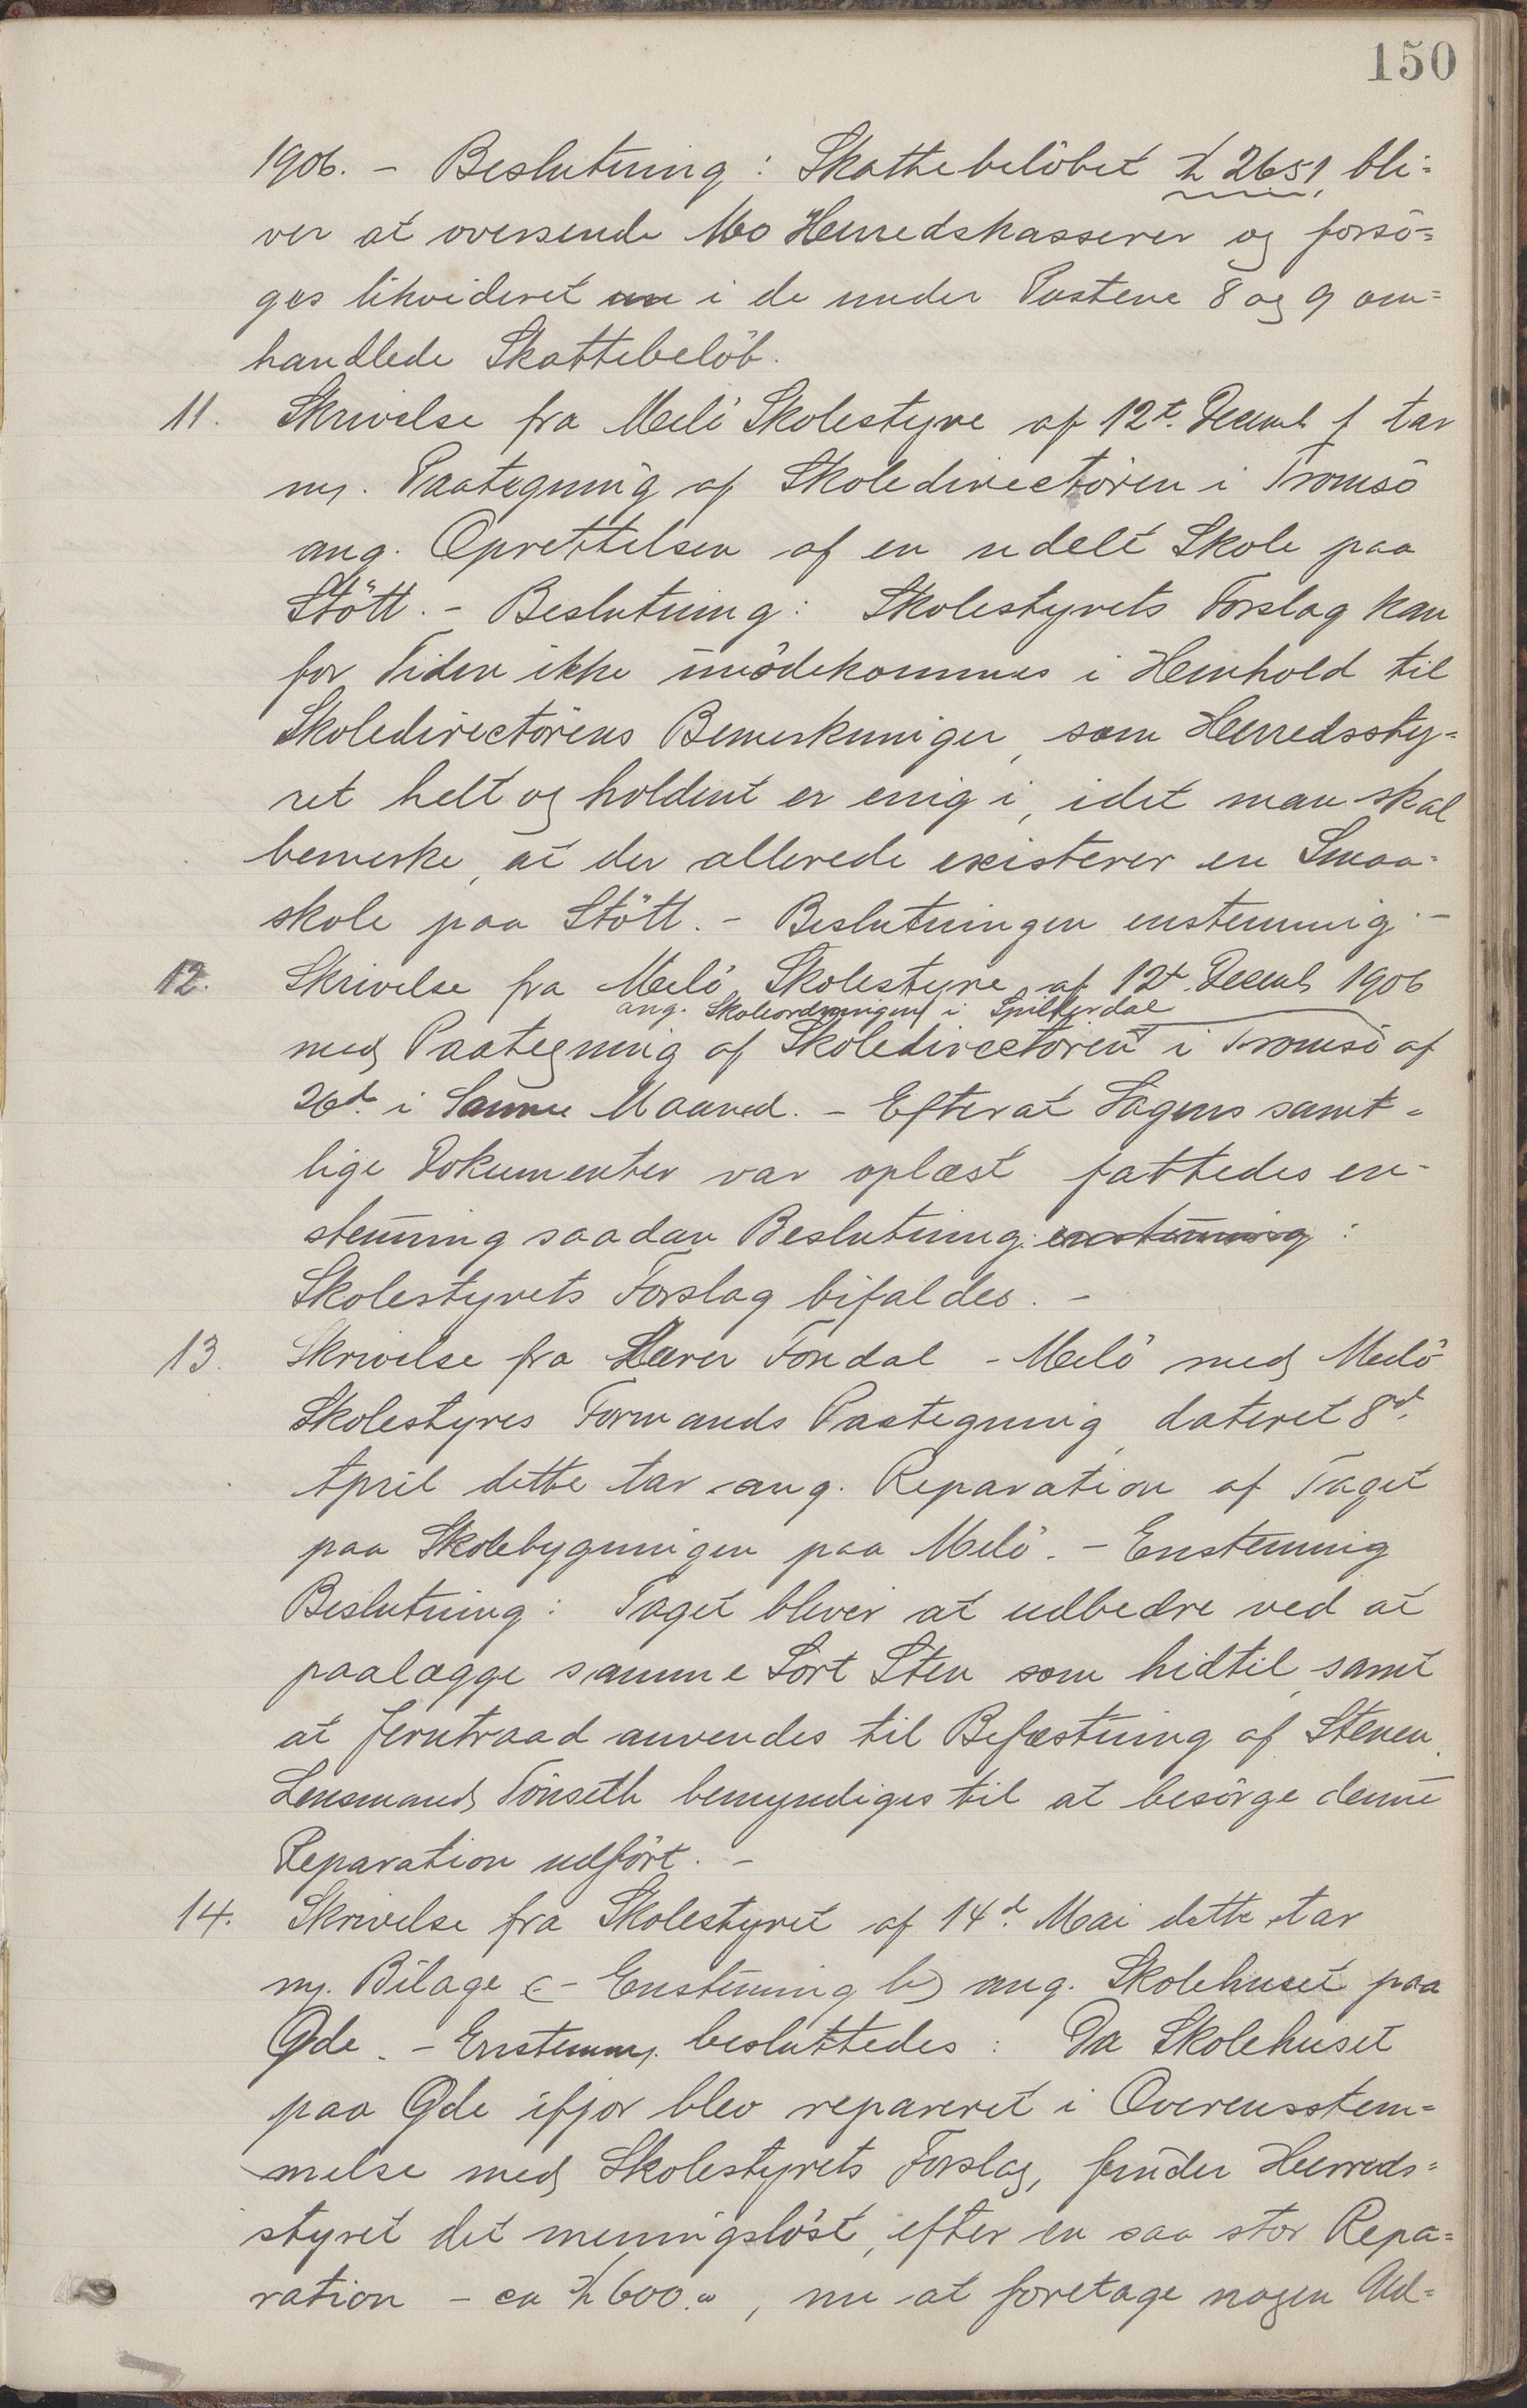 150
1906. - Beslutning: Skattebelöbet K 2651, bli-
ver at oversende Mo Herredskasserer og forsö-
ges likvideret i de under Postene 8 og 9 om-
handlede Skattebelöb.
11. Skrivelse fra Melö Skolestyre af 12t. Decemb f Aar
m. Paategning af Skoledirectören i Tromsö
ang. Oprettelsen af en udelt Skole paa
Stött. - Beslutning: Skolestyrets Forslag kan
for Tiden ikke imödekommes i Henhold til
Skoledirectörens Bemerkninger, som Herredssty-
ret helt og holdent er enig i, idet man skal
bemerke, at der allerede existerer en Smaa-
skole paa Stött. - Beslutningen enstemmig. -
12. Skrivelse fra Melö Skolestyre af 12t. Decemb 1906
ang. Skoleordningen i Spilderdal
med Paategning af Skoledirectören i Tromsö af
26d. i Samme Maaned. - Efterat Sagens samt-
lige Dokumenter var oplæst fattedes en-
stem̄ig saadan Beslutning: enstem̄ig :
Skolestyrets Forslag bifaldes. -
13. Skrivelse fra Lærer Fondal - Melö med Melö
Skolestyres Formands Paategning dateret 8d.
April dette Aar ang. Reparation af Taget
paa Skolebygningen paa Melö. - Enstemmig
Beslutning: Taget bliver at udbedre ved at
paalægge samme Sort Sten som hidtil, samt
at Jerntraad anvendes til Befæstning af Stenen.
Lensmand Tönseth bemyndiges til at besörge denne
Reparation udfört. -
14. Skrivelse fra Skolestyret af 14d. Mai dette Aar
m. Bilage (- Enstem̄ig b) ang. Skolehuset paa
Øde. - Enstemm. besluttedes: Da Skolehuset
paa Øde ifjor blev repareret i Overensstem-
melse med Skolestyrets Forslag, finder Herreds-
styret det meningslöst, efter en saa stor Repa-
ration - ca K 600.00, nu at foretage nogen Ud-